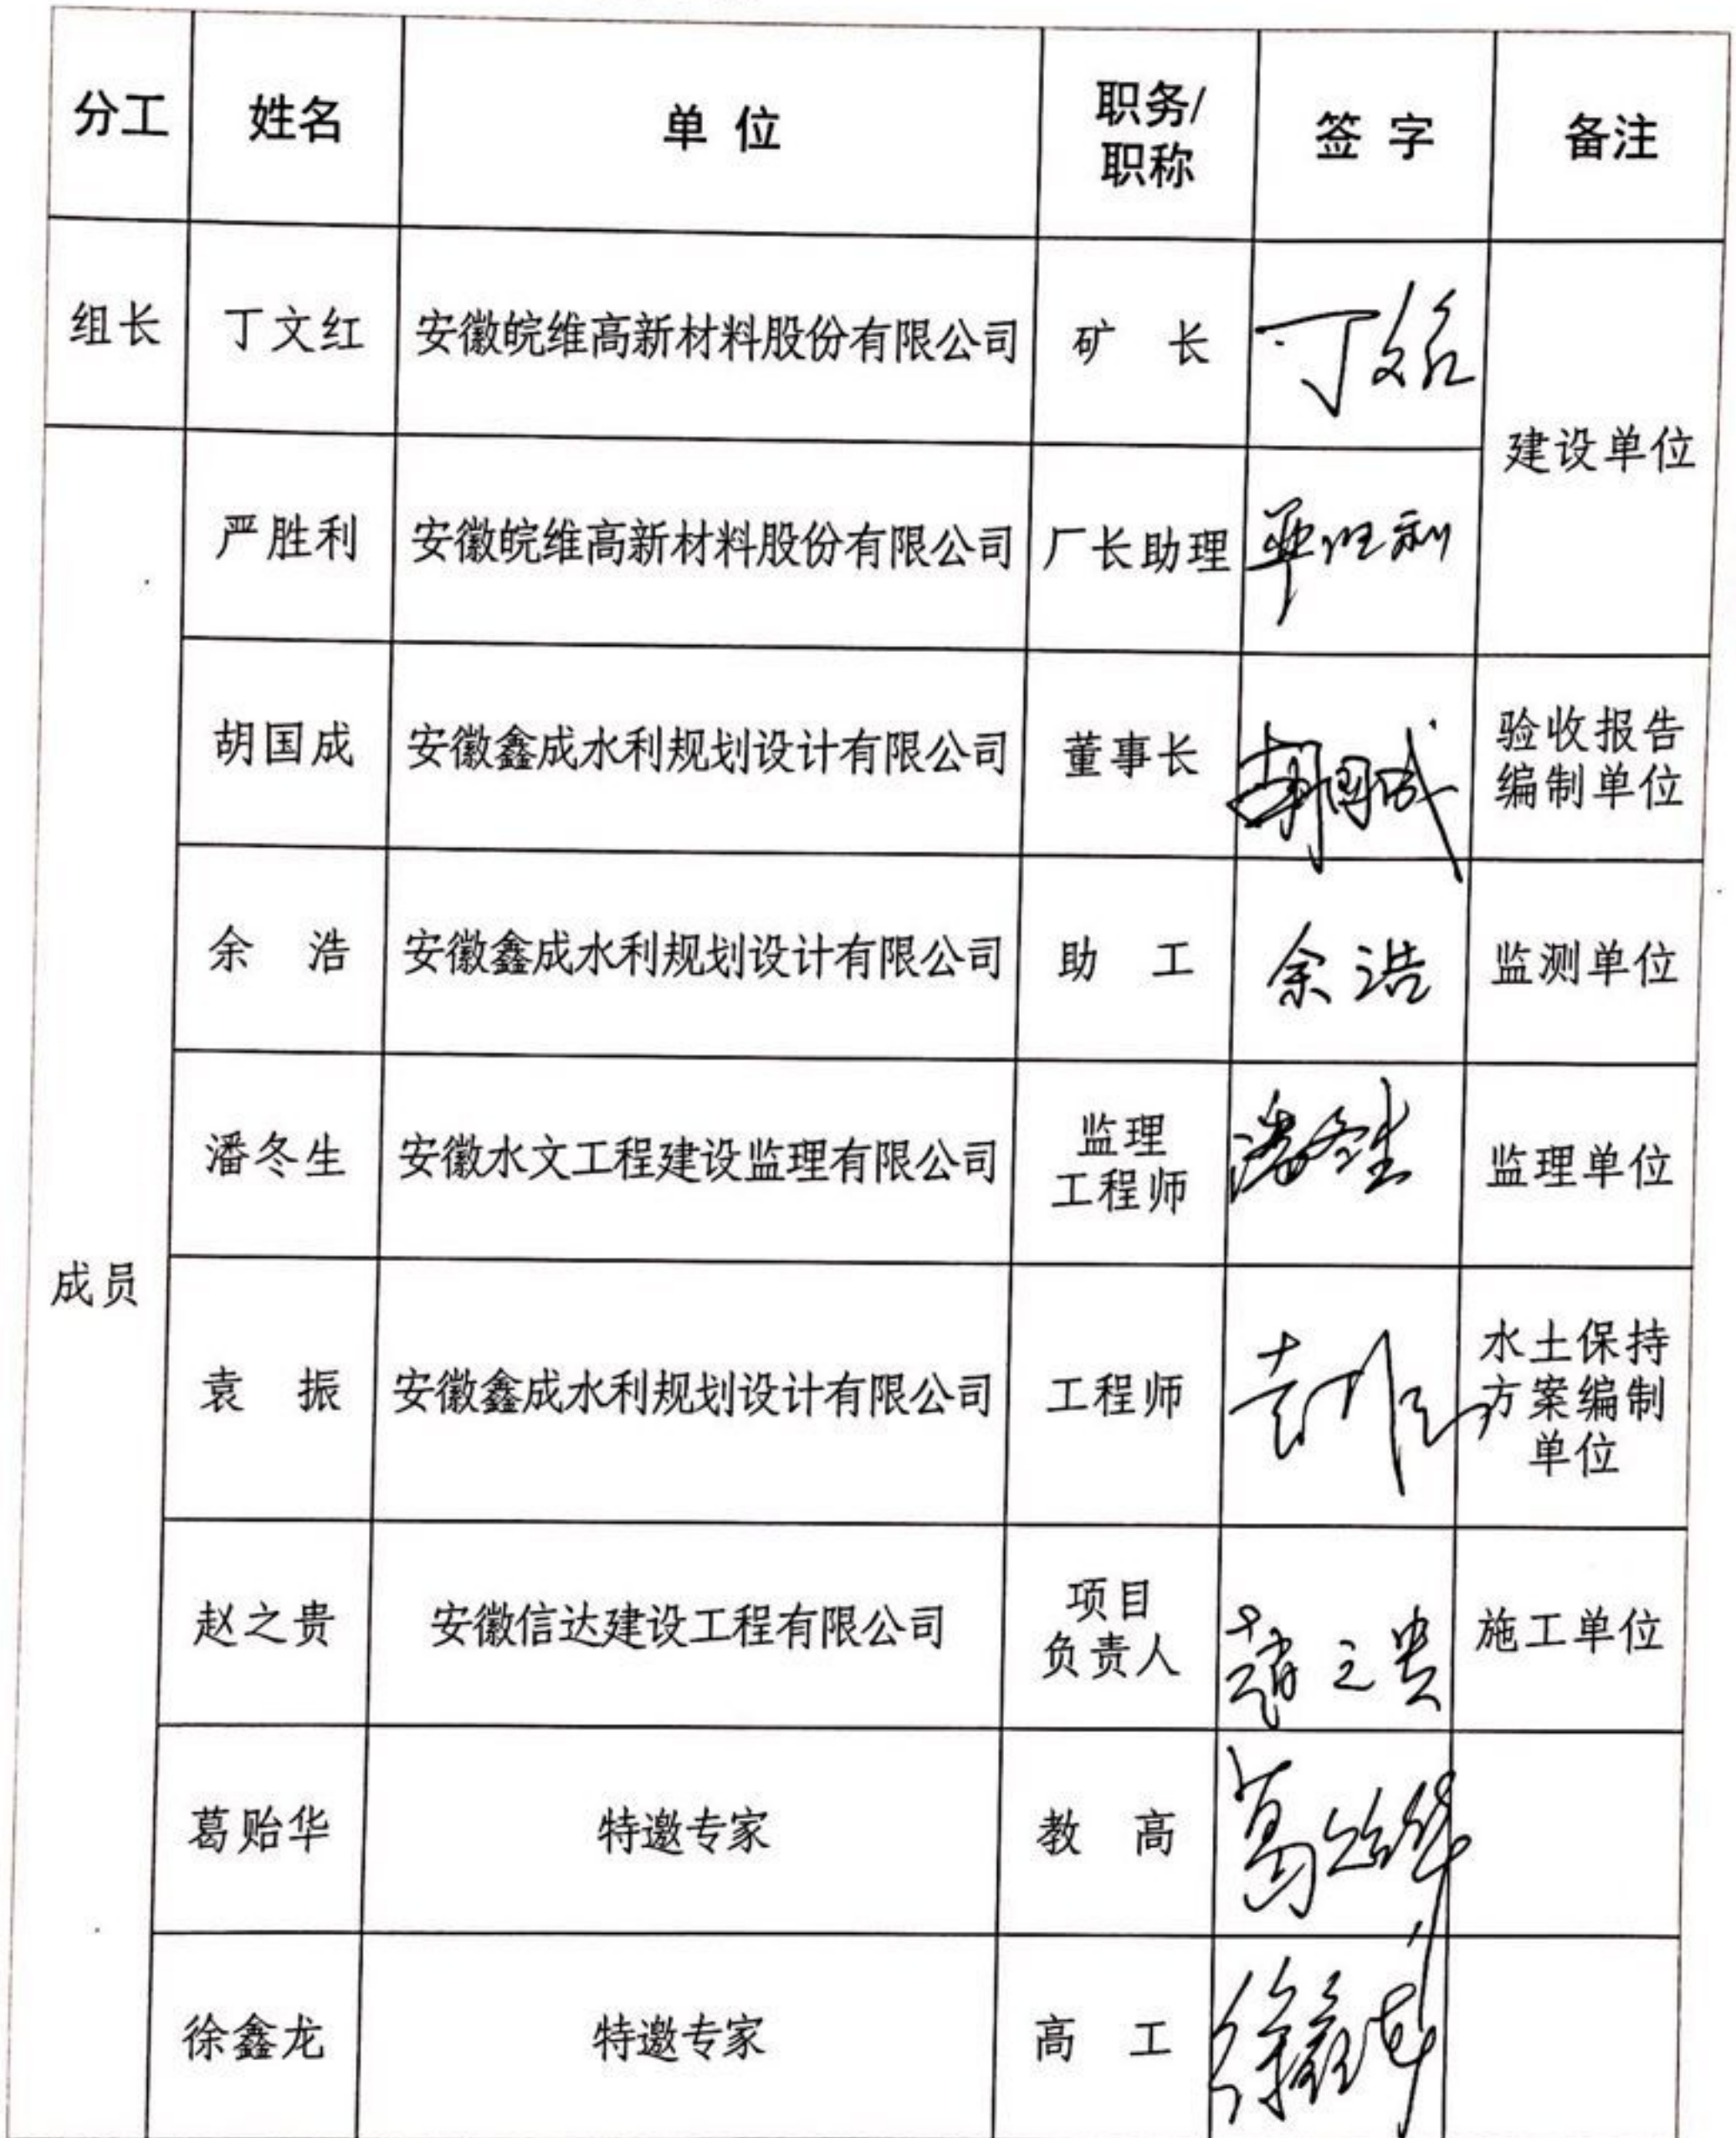 分工 姓名 单 位 职务/职称 签 字 备注
组长 丁文红 安徽皖维高新材料股份有限公司 矿 长 丁文红 建设单位
成员
严胜利 安徽皖维高新材料股份有限公司 厂长助理 严胜利
胡国成 安徽鑫成水利规划设计有限公司 董事长 胡国成 验收报告
编制单位
余 浩 安徽鑫成水利规划设计有限公司 助 工 余浩 监测单位
潘冬生 安徽水文工程建设监理有限公司 监理
工程师 潘冬生 监理单位
袁 振 安徽鑫成水利规划设计有限公司 工程师 袁振 水土保持
方案编制
单位
赵之贵 安徽信达建设工程有限公司 项目
负责人 赵之贵 施工单位
葛贻华 特邀专家 教 高 葛贻华
徐鑫龙 特邀专家 高 工 徐鑫龙